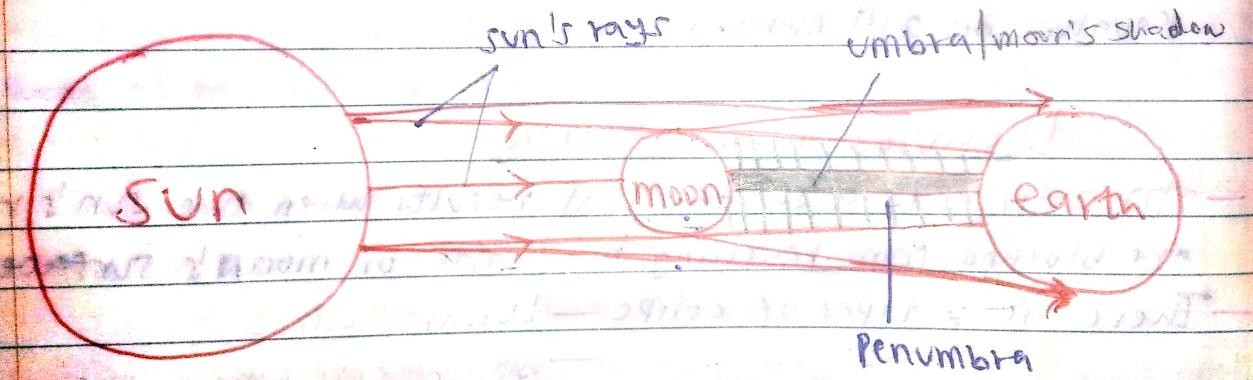 sun's rays
umbra/moon's shadow
sun
moon
earth
Penumbra